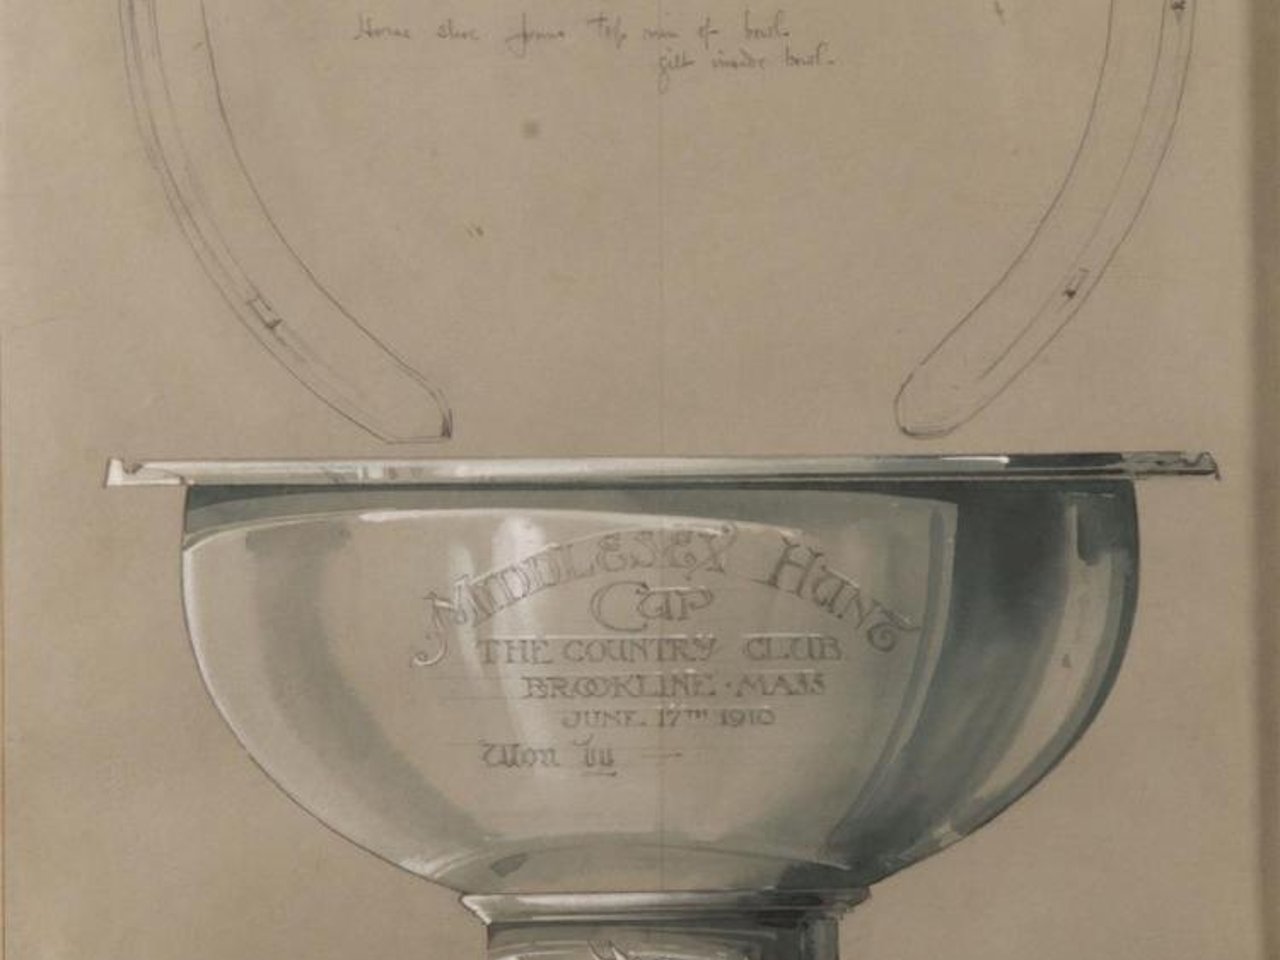 Horse shoe forms top rim of bowl.
gilt inside bowl.
MIDDLESEX HUNT
CUP
THE COUNTRY CLUB
BROOKLINE · MASS
JUNE 17TH 1910
Won by —